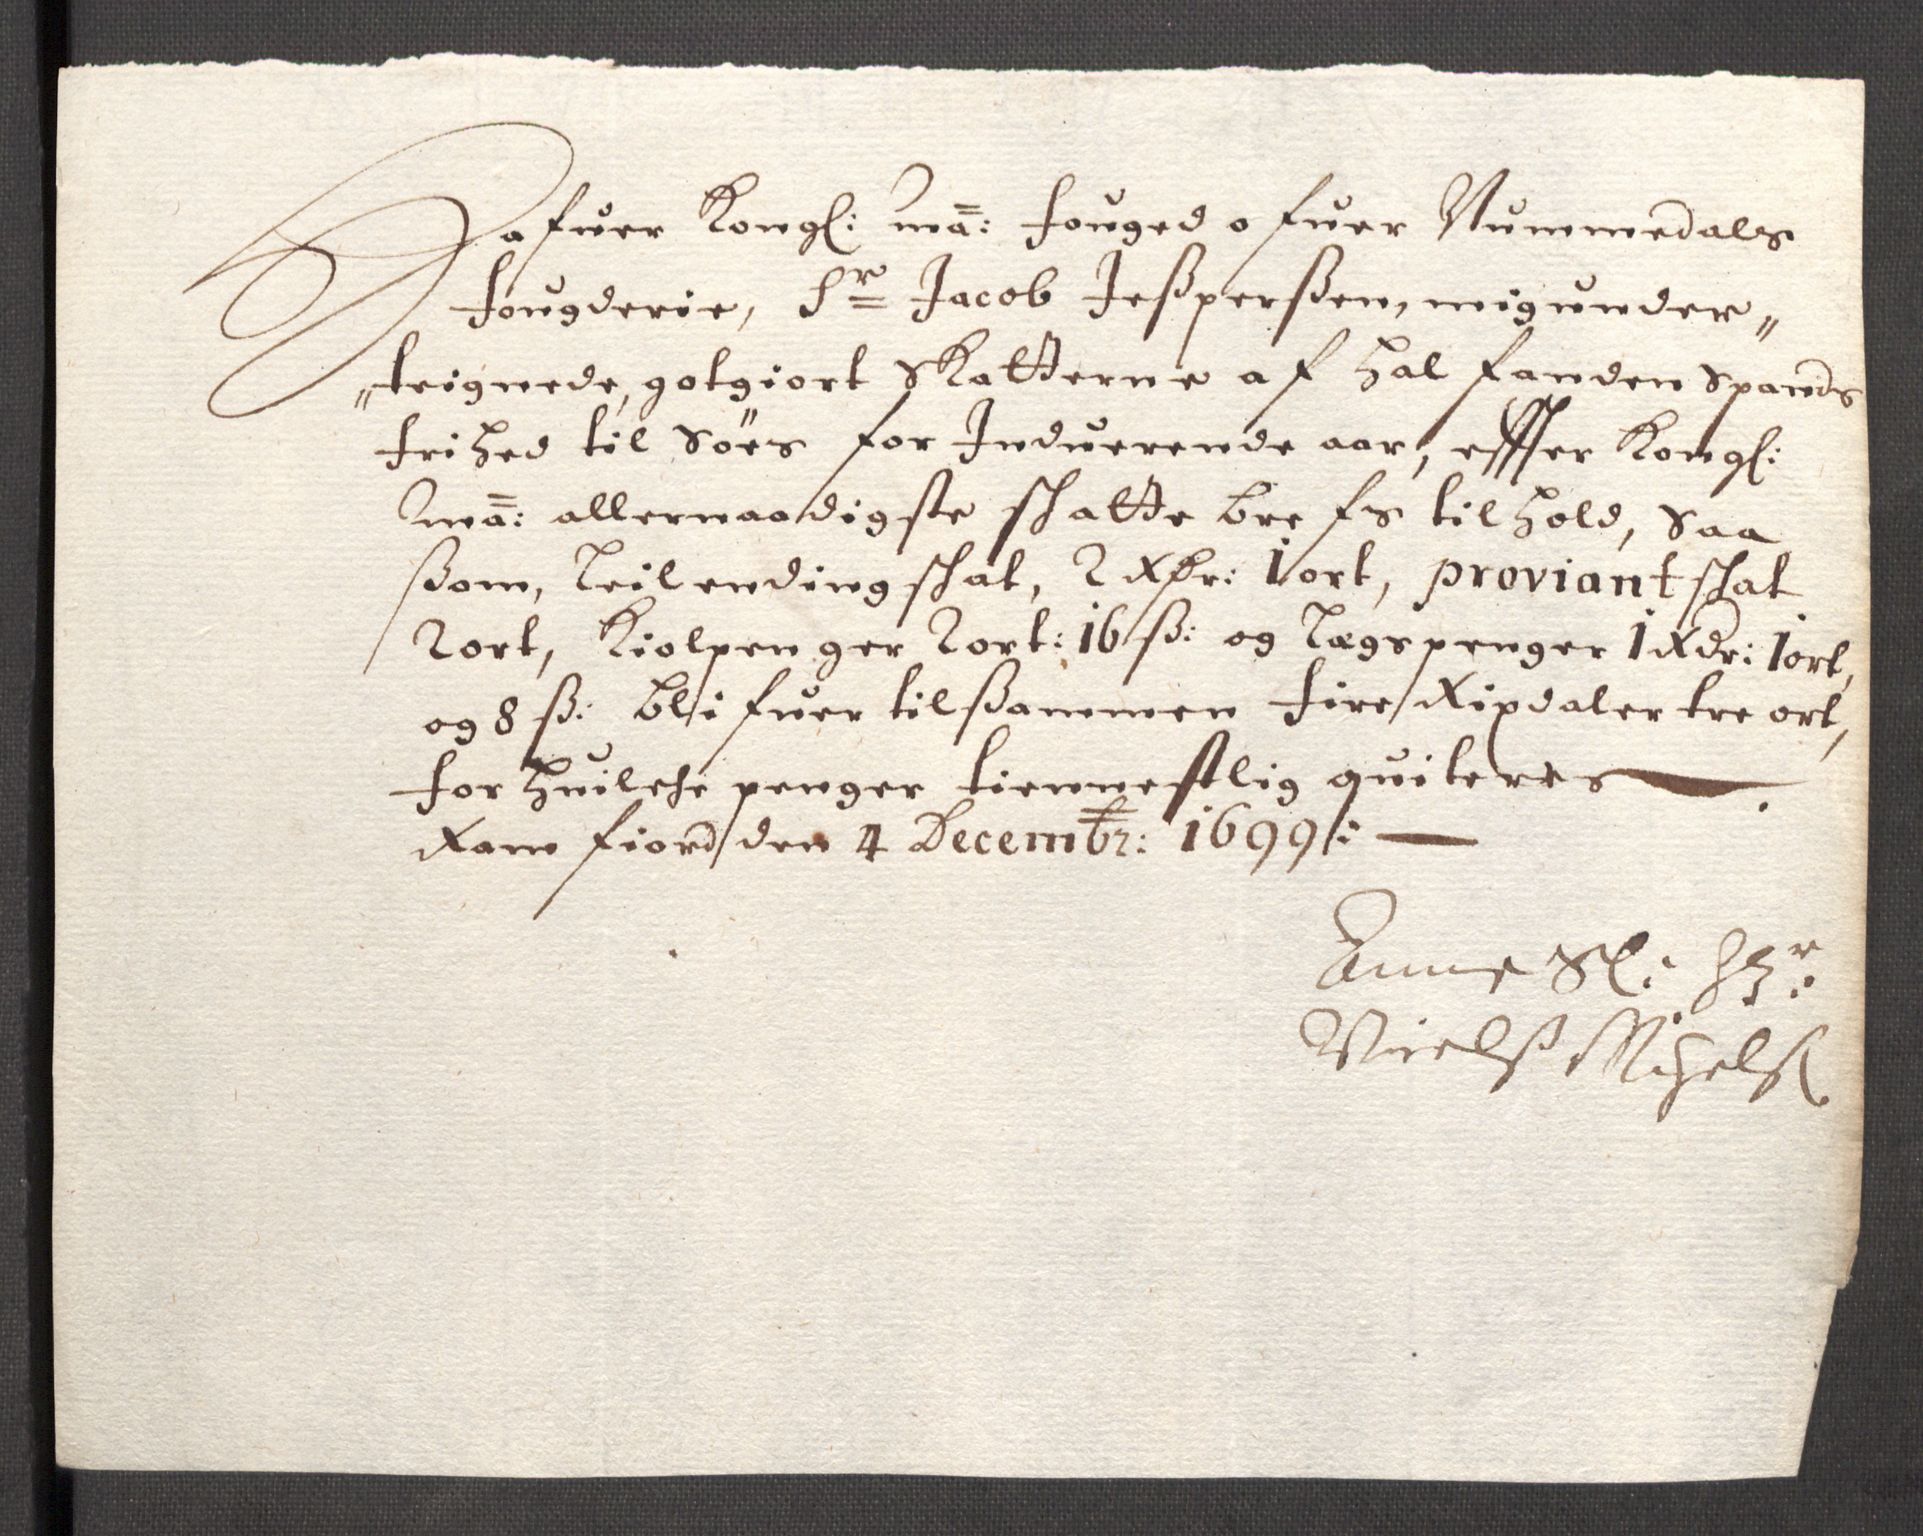 Hafuer Kongl: Ma: fouged ofuer Nummedals
fougderie, Sr Jacob Jeßperßen, mig under„
„teignede, gotgiort Skatterne af halfanden Spands
frihed til Söes for Induerende aar, effter Kongl:
Ma: allernaadigste schatte brefs tilhold, Saa
ßom, Leilendingschat, 2 Rdr: 1 ort, proviantschat
2 ort, Kiolpenger 2 ort: 16 ß: og Lægspenger 1 Rdr: 1 ort,
og 8 ß: blifuer tilßammen fire Rixdaler tre ort,
for huilche penger tiennestlig quiteres
Ramfiord den 4 Decembr: 1699:
Anne Sl: Hr:
Nielß Mihelß